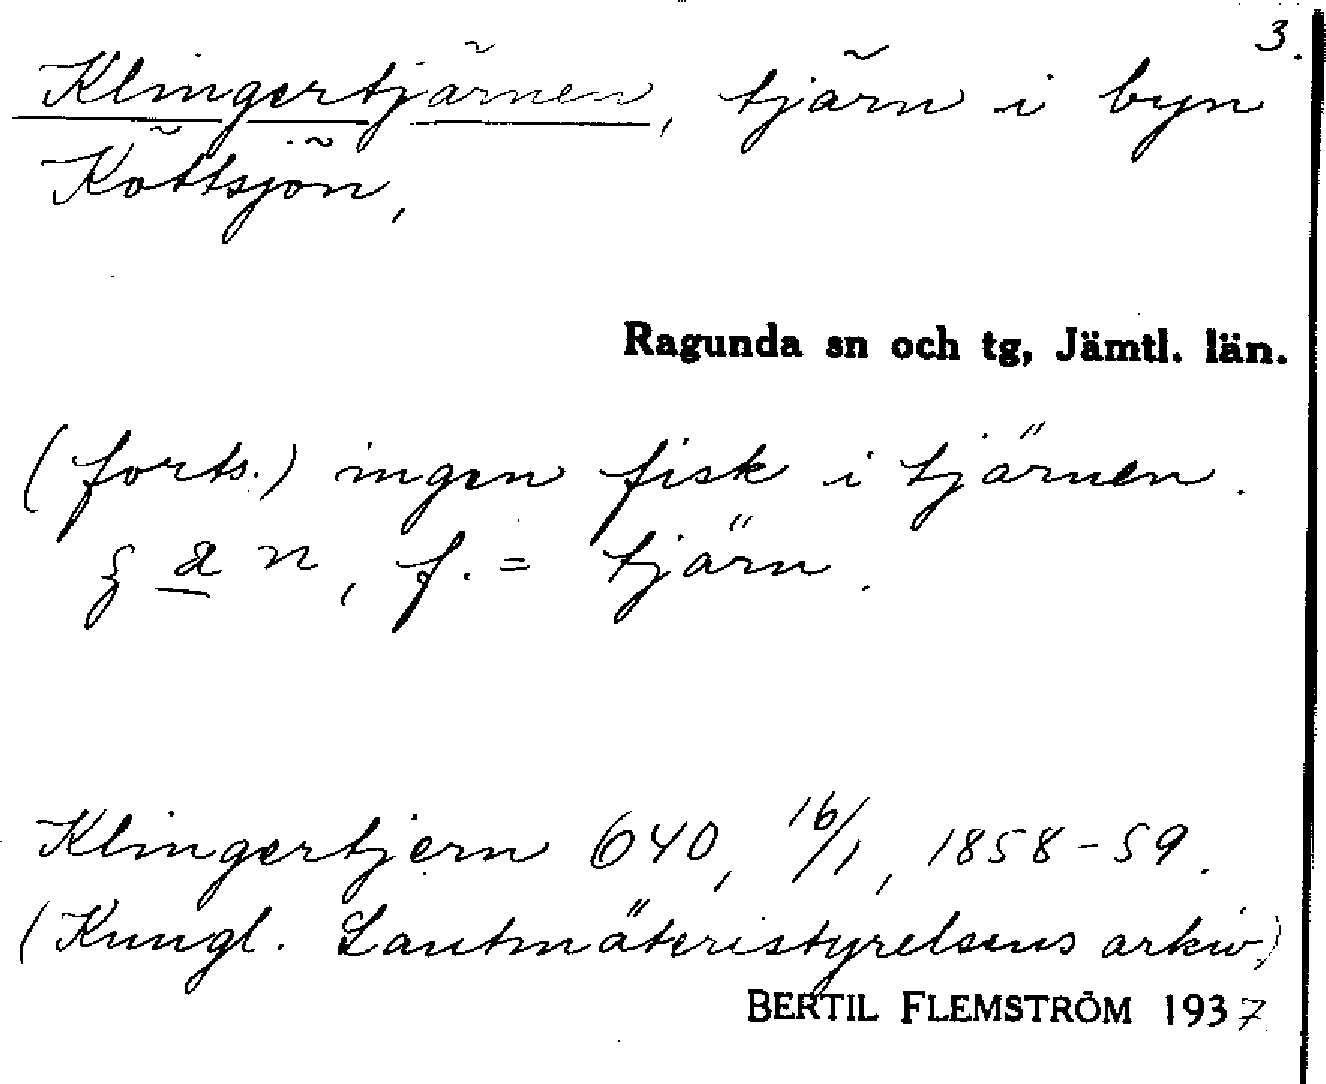 3.
Klingertjärnen, tjärn i byn
Köttsjön,
Ragunda sn och tg, Jämtl. län.
(forts.) ingen fisk i tjärnen.
n, f. = tjärn.
Klingertjern 640, 16/1, 1858-59.
(Kungl. Lantmäteristyrelsens arkiv)
BERTIL FLEMSTRÖM 1937